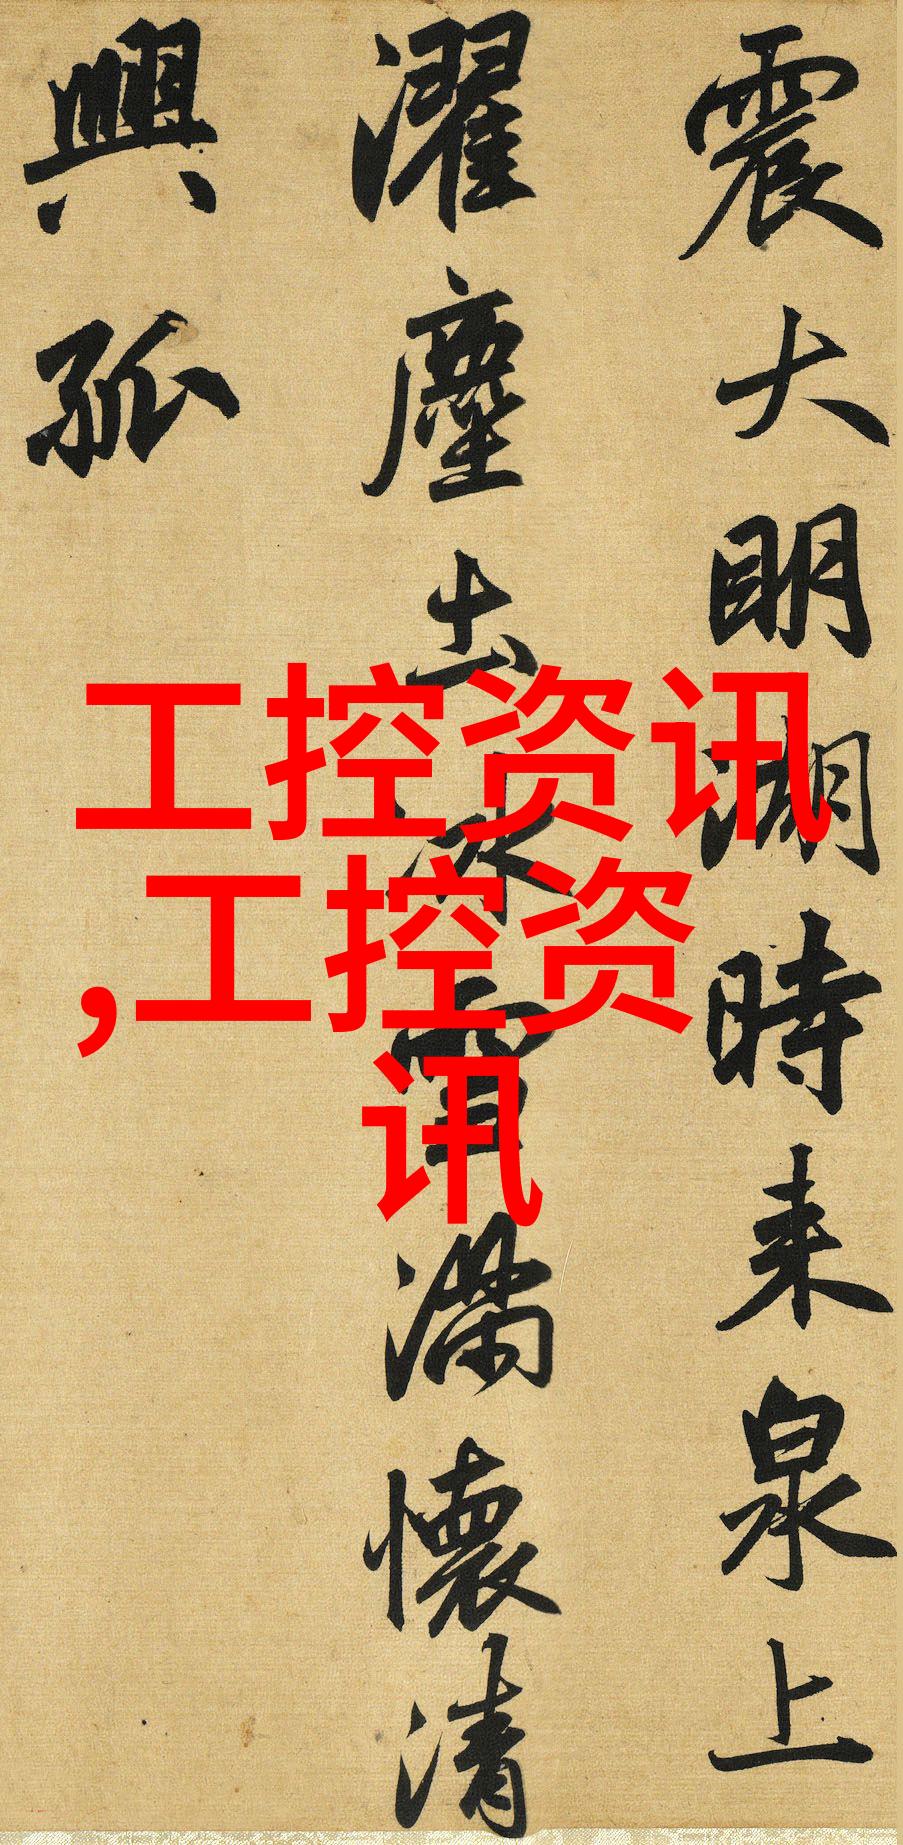 震大明湖時来泉上
濯塵土冰雪滿懷清
興孤
工控资讯
,工控资
讯